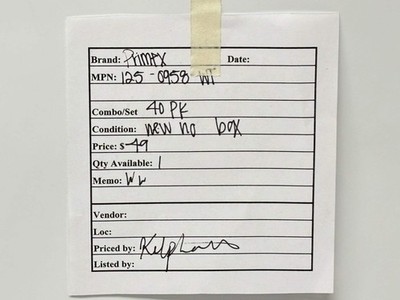 Brand: Primex Date:
MPN: 125-0958-WT
Combo/Set 40 PK
Condition: new no box
Price: $49
Qty Available: 1
Memo: WL
Vendor:
Loc:
Priced by:
Listed by: